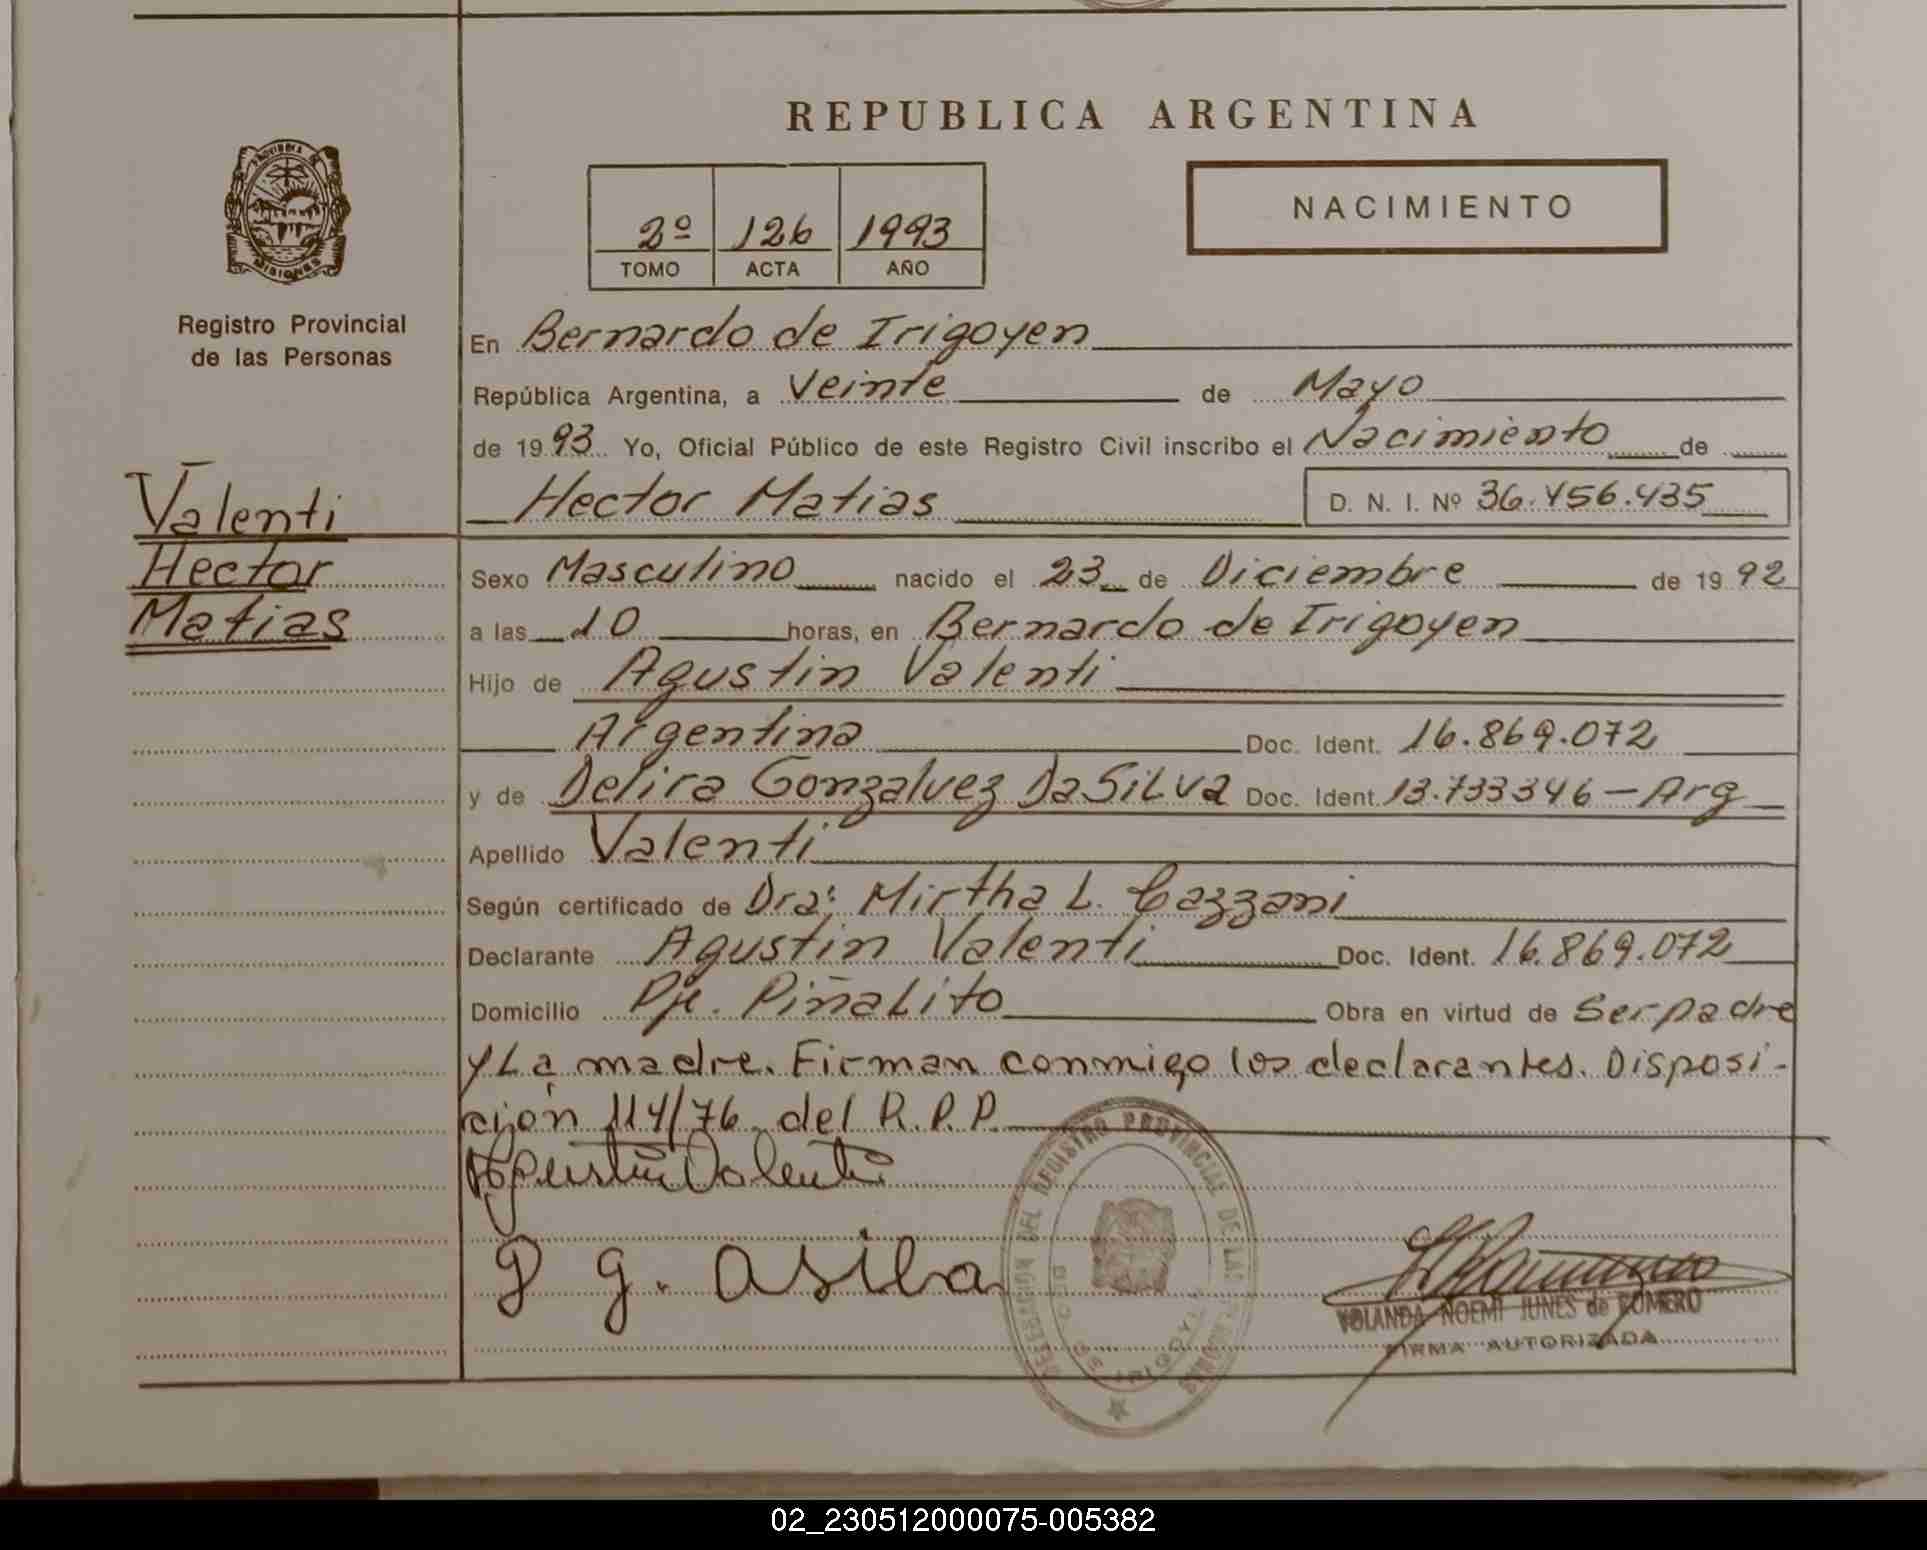 REPUBLICA ARGENTINA
NACIMIENTO
2º 126 1993
TOMO ACTA AÑO
PROVINCIA DE
MISIONES
Registro Provincial
de las Personas
En Bernardo de Irigoyen
República Argentina, a Veinte de Mayo
de 19 93 Yo, Oficial Público de este Registro Civil inscribo el Nacimiento de
Hector Matias D. N. I. Nº 36.456.435
Valenti
Hector
Matias
Sexo Masculino nacido el 23 de Diciembre de 19 92
a las 10 horas, en Bernardo de Irigoyen
Hijo de Agustin Valenti
Argentina Doc. Ident. 16.869.072
y de Delira Gonzalvez DaSilva Doc. Ident. 13.733346 - Arg
Apellido Valenti
Según certificado de Dra: Mirtha L. Cazzani
Declarante Agustin Valenti Doc. Ident. 16.869.072
Domicilio Pje. Piñalito Obra en virtud de Ser padre
y La madre. Firman conmigo los declarantes. Disposi-
ción 114/76 del R.P.P.
Agustin Valenti
D g. asilva
DEL REGISTRO PROVINCIAL DE LAS PERSONAS
DE IRIGOYEN
YOLANDA NOEMI JUNES de ROMERO
FIRMA AUTORIZADA
02_230512000075-005382